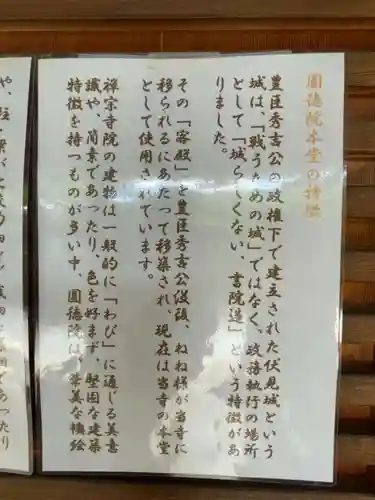 圓徳院本堂の特徴
豊臣秀吉公の政権下で建立された伏見城という
城は、「戦うための城」ではなく、政務執行の場所
として「城らしくない、書院造」という特徴があ
りました。
その「客殿」を豊臣秀吉公没後、ねね様が当寺に
移られるにあたって移築され、現在は当寺の本堂
として使用されています。
禅宗寺院の建物は一般的に「わび」に通じる美意
識や、簡素であったり、色を好まず、堅固な建築
特徴を持つものが多い中、圓徳院は、華美な襖絵